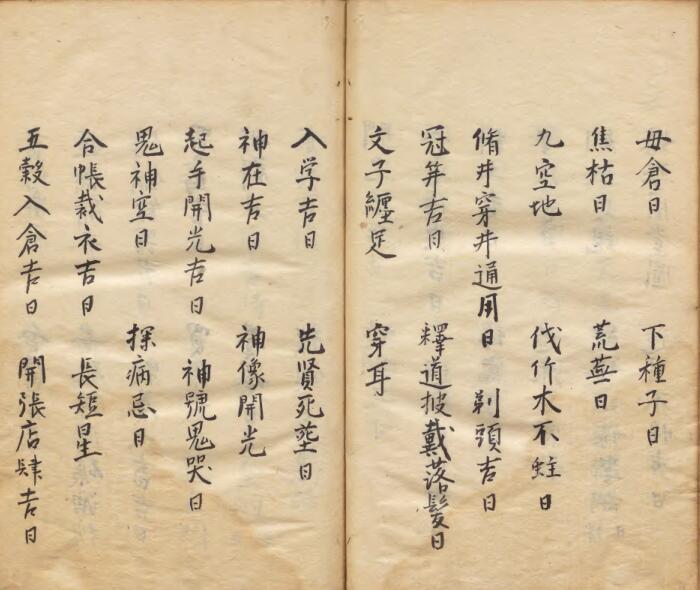 母倉日　下種子日
焦枯日　荒蕪日
九空地　伐竹木不蛀日
脩井穿井通用日　剃頭吉日
冠笄吉日　釋道披戴落髮日
文子纏足　穿耳
入学吉日　先贤死塟日
神在吉日　神像開光
起手開光吉日　神號鬼哭日
鬼神空日　探病忌日
合帳裁衣吉日　長短星
五糓入倉吉日　開張店肆吉日